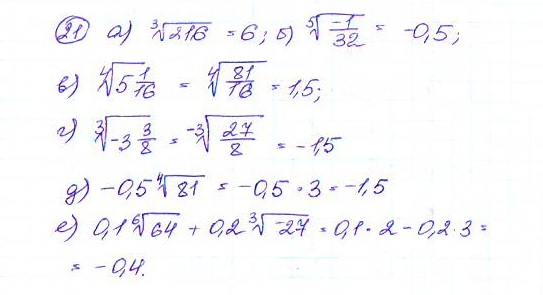 21 а) ∛216 = 6; б) ⁵√(-1/32) = -0,5;
в) ⁴√(5 1/16) = ⁴√(81/16) = 1,5;
г) ∛(-3 3/8) = -∛(27/8) = -1,5
д) -0,5 ⁴√81 = -0,5 · 3 = -1,5
е) 0,1 ⁶√64 + 0,2 ∛-27 = 0,1 · 2 - 0,2 · 3 =
= -0,4.